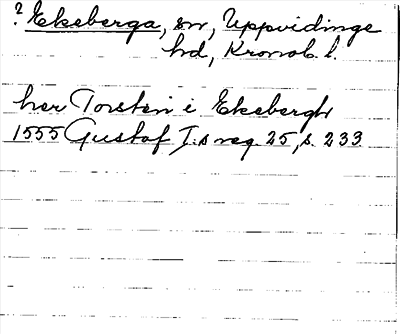 ? Ekeberga, sn, Uppvidinge
hd, Kronob. l.
her Torsten i Ekebergh
1555 Gustaf I:s reg. 25, s. 233